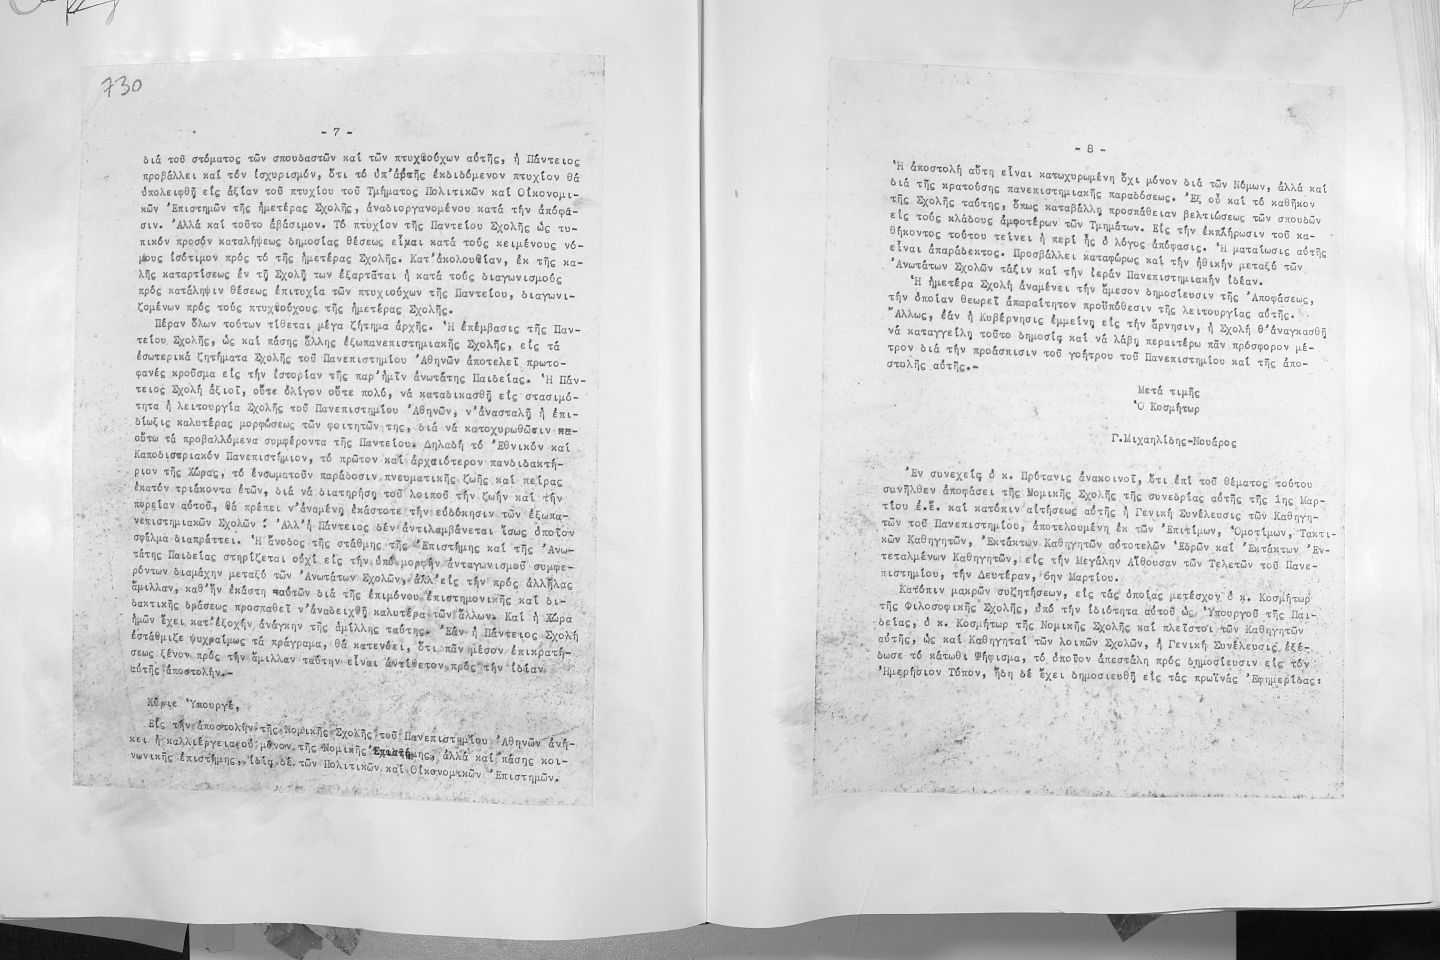 730
- 7 -
διά τοῦ στόματος τῶν σπουδαστῶν καί τῶν πτυχιούχων αὐτῆς, ἡ Πάντειος
προβάλλει καί τόν ἰσχυρισμόν, ὅτι τό ὑπ'αὐτῆς ἐκδιδόμενον πτυχίον θά
ὑπολειφθῇ εἰς ἀξίαν τοῦ πτυχίου τοῦ Τμήματος Πολιτικῶν καί Οἰκονομι-
κῶν Ἐπιστημῶν τῆς ἡμετέρας Σχολῆς, ἀναδιοργανομένου κατά τήν ἀπόφα-
σιν. Ἀλλά καί τοῦτο ἀβάσιμον. Τό πτυχίον τῆς Παντείου Σχολῆς ὡς τυ-
πικόν προσόν καταλήψεως δημοσίας θέσεως εἶμαι κατά τούς κειμένους νό-
μους ἰσότιμον πρός τό τῆς ἡμετέρας Σχολῆς. Κατ'ἀκολουθίαν, ἐκ τῆς κα-
λῆς καταρτίσεως ἐν τῇ Σχολῇ των ἐξαρτᾶται ἡ κατά τούς διαγωνισμούς
πρός κατάληψιν θέσεως ἐπιτυχία τῶν πτυχιούχων τῆς Παντείου, διαγωνι-
ζομένων πρός τούς πτυχιούχους τῆς ἡμετέρας Σχολῆς.
Πέραν ὅλων τούτων τίθεται μέγα ζήτημα ἀρχῆς. Ἡ ἐπέμβασις τῆς Παν-
τείου Σχολῆς, ὡς καί πάσης ἄλλης ἐξωπανεπιστημιακῆς Σχολῆς, εἰς τά
ἐσωτερικά ζητήματα Σχολῆς τοῦ Πανεπιστημίου Ἀθηνῶν ἀποτελεῖ πρωτο-
φανές κροῦσμα εἰς τήν ἱστορίαν τῆς παρ'ἡμῖν ἀνωτάτης Παιδείας. Ἡ Πάν-
τειος Σχολή ἀξιοῖ, οὔτε ὀλίγον οὔτε πολύ, νά καταδικασθῇ εἰς στασιμό-
τητα ἡ λειτουργία Σχολῆς τοῦ Πανεπιστημίου Ἀθηνῶν, ν'ἀνασταλῇ ἡ ἐπι-
δίωξις καλυτέρας μορφώσεως τῶν φοιτητῶν της, διά νά κατοχυρωθῶσιν
οὕτω τά προβαλλόμενα συμφέροντα τῆς Παντείου. Δηλαδή τό Ἐθνικόν καί
Καποδιστριακόν Πανεπιστήμιον, τό πρῶτον καί ἀρχαιότερον πανδιδακτή-
ριον τῆς Χώρας, τό ἐνσωματοῦν παράδοσιν πνευματικῆς ζωῆς καί πείρας
ἑκατόν τριάκοντα ἐτῶν, διά νά διατηρήσῃ τοῦ λοιποῦ τήν ζωήν καί τήν
πορείαν αὐτοῦ, θά πρέπει ν'ἀναμένῃ ἑκάστοτε τήν εὐδόκησιν τῶν ἐξωπα-
νεπιστημιακῶν Σχολῶν ! Ἀλλ'ἡ Πάντειος δέν ἀντιλαμβάνεται ἴσως ὁποῖον
σφᾶλμα διαπράττει. Ἡ ἄνοδος τῆς στάθμης τῆς Ἐπιστήμης καί τῆς Ἀνω-
τάτης Παιδείας στηρίζεται οὐχί εἰς τήν ὑπό μορφήν ἀνταγωνισμοῦ συμφε-
ρόντων διαμάχην μεταξύ τῶν Ἀνωτάτων Σχολῶν, ἀλλ'εἰς τήν πρός ἀλλήλας
ἅμιλλαν, καθ'ἥν ἑκάστη αὐτῶν διά τῆς ἐπιμόνου ἐπιστημονικῆς καί δι-
δακτικῆς δράσεως προσπαθεῖ ν'ἀναδειχθῇ καλυτέρα τῶν ἄλλων. Καί ἡ Χώρα
ἡμῶν ἔχει κατ'ἐξοχήν ἀνάγκην τῆς ἁμίλλης ταύτης. Ἐάν ἡ Πάντειος Σχολή
ἐστάθμιζε ψυχραίμως τά πράγματα, θά κατενόει, ὅτι πᾶν μέσον ἐπικρατή-
σεως ξένον πρός τήν ἅμιλλαν ταύτην εἶναι ἀντίθετον πρός τήν ἰδίαν
αὐτῆς ἀποστολήν.-
Κύριε Ὑπουργέ,
Εἰς τήν ἀποστολήν τῆς Νομικῆς Σχολῆς τοῦ Πανεπιστημίου Ἀθηνῶν ἀνή-
κει ἡ καλλιέργεια οὐ μόνον τῆς Νομικῆς Ἐπιστήμης, ἀλλά καί πάσης κοι-
νωνικῆς ἐπιστήμης, ἰδίᾳ δέ τῶν Πολιτικῶν καί Οἰκονομικῶν Ἐπιστημῶν.
- 8 -
Ἡ ἀποστολή αὕτη εἶναι κατωχυρωμένη ὄχι μόνον διά τῶν Νόμων, ἀλλά καί
διά τῆς κρατούσης πανεπιστημιακῆς παραδόσεως. Ἐξ οὗ καί τό καθῆκον
τῆς Σχολῆς ταύτης, ὅπως καταβάλλῃ προσπάθειαν βελτιώσεως τῶν σπουδῶν
εἰς τούς κλάδους ἀμφοτέρων τῶν Τμημάτων. Εἰς τήν ἐκπλήρωσιν τοῦ κα-
θήκοντος τούτου τείνει ἡ περί ἧς ὁ λόγος ἀπόφασις. Ἡ ματαίωσις αὐτῆς
εἶναι ἀπαράδεκτος. Προσβάλλει καταφώρως καί τήν ἠθικήν μεταξύ τῶν
Ἀνωτάτων Σχολῶν τάξιν καί τήν ἱεράν Πανεπιστημιακήν ἰδέαν.
Ἡ ἡμετέρα Σχολή ἀναμένει τήν ἄμεσον δημοσίευσιν τῆς Ἀποφάσεως,
τήν ὁποίαν θεωρεῖ ἀπαραίτητον προϋπόθεσιν τῆς λειτουργίας αὐτῆς.
Ἄλλως, ἐάν ἡ Κυβέρνησις ἐμμείνῃ εἰς τήν ἄρνησιν, ἡ Σχολή θ'ἀναγκασθῇ
νά καταγγείλῃ τοῦτο δημοσίᾳ καί νά λάβῃ περαιτέρω πᾶν πρόσφορον μέ-
τρον διά τήν προάσπισιν τοῦ γοήτρου τοῦ Πανεπιστημίου καί τῆς ἀπο-
στολῆς αὐτῆς.-
Μετά τιμῆς
Ὁ Κοσμήτωρ
Γ.Μιχαηλίδης-Νουάρος
Ἐν συνεχείᾳ ὁ κ. Πρύτανις ἀνακοινοῖ, ὅτι ἐπί τοῦ θέματος τούτου
συνῆλθεν ἀποφάσει τῆς Νομικῆς Σχολῆς τῆς συνεδρίας αὐτῆς τῆς 1ης Μαρ-
τίου ἐ.ἔ. καί κατόπιν αἰτήσεως αὐτῆς ἡ Γενική Συνέλευσις τῶν Καθηγη-
τῶν τοῦ Πανεπιστημίου, ἀποτελουμένη ἐκ τῶν Ἐπιτίμων, Ὁμοτίμων, Τακτι-
κῶν Καθηγητῶν, Ἐκτάκτων Καθηγητῶν αὐτοτελῶν Ἑδρῶν καί Ἐκτάκτων Ἐν-
τεταλμένων Καθηγητῶν, εἰς τήν Μεγάλην Αἴθουσαν τῶν Τελετῶν τοῦ Πανε-
πιστημίου, τήν Δευτέραν, 6ην Μαρτίου.
Κατόπιν μακρῶν συζητήσεων, εἰς τάς ὁποίας μετέσχον ὁ κ. Κοσμήτωρ
τῆς Φιλοσοφικῆς Σχολῆς, ὑπό τήν ἰδιότητα αὐτοῦ ὡς Ὑπουργοῦ τῆς Παι-
δείας, ὁ κ. Κοσμήτωρ τῆς Νομικῆς Σχολῆς καί πλεῖστοι τῶν Καθηγητῶν
αὐτῆς, ὡς καί Καθηγηταί τῶν λοιπῶν Σχολῶν, ἡ Γενική Συνέλευσις ἐξέ-
δωσε τό κάτωθι Ψήφισμα, τό ὁποῖον ἀπεστάλη πρός δημοσίευσιν εἰς τόν
Ἡμερήσιον Τύπον, ἤδη δέ ἔχει δημοσιευθῆ εἰς τάς πρωϊνάς Ἐφημερίδας: